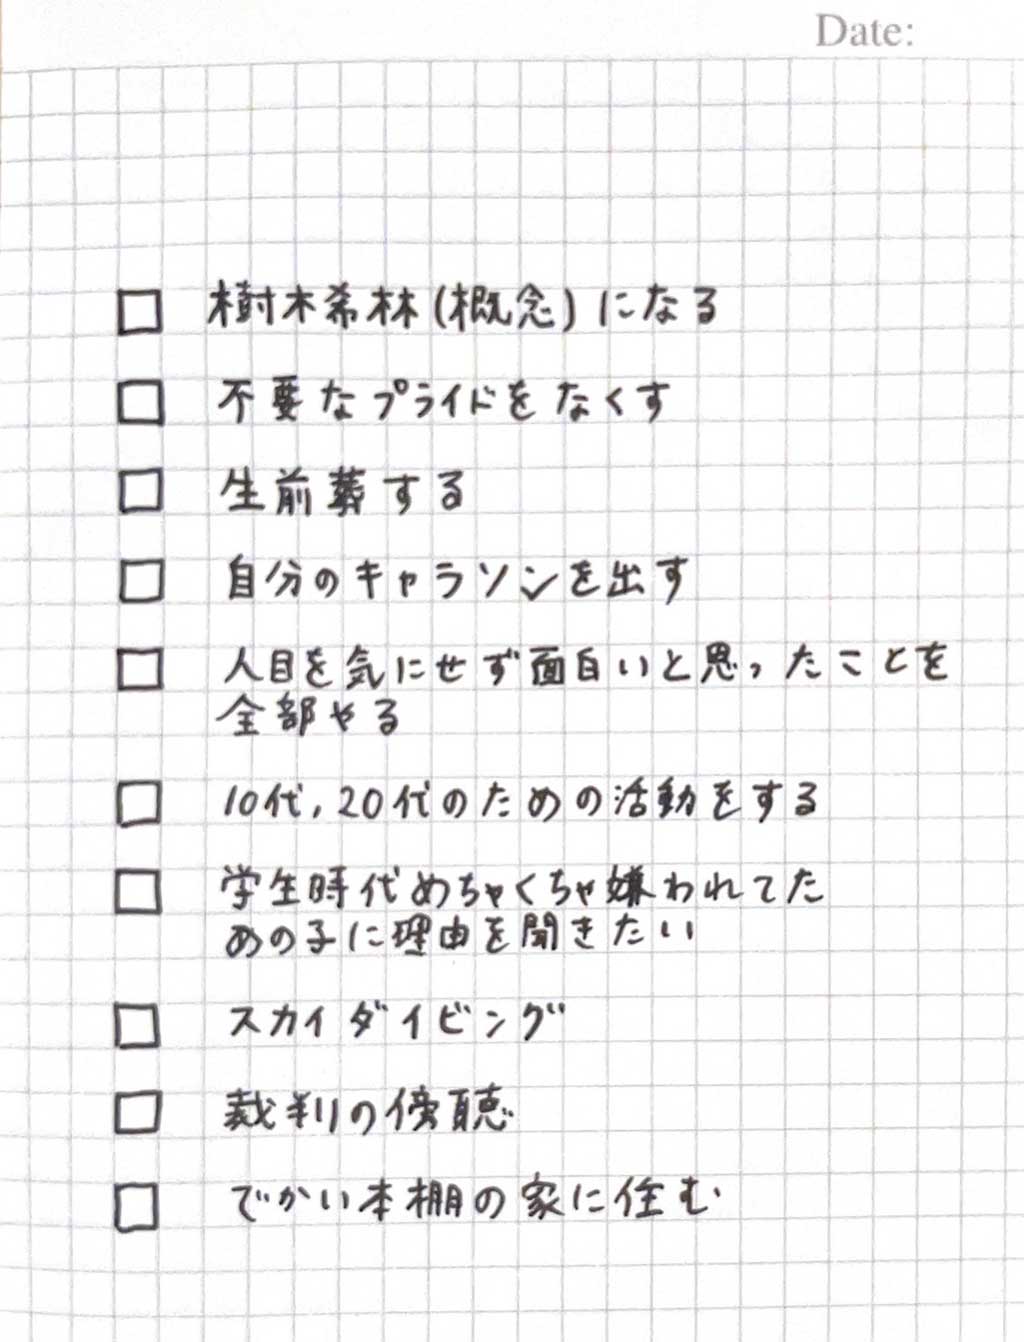 Date:
□ 樹木希林(概念)になる
□ 不要なプライドをなくす
□ 生前葬する
□ 自分のキャラソンを出す
□ 人目を気にせず面白いと思ったことを
全部やる
□ 10代,20代のための活動をする
□ 学生時代めちゃくちゃ嫌われてた
あの子に理由を聞きたい
□ スカイダイビング
□ 裁判の傍聴
□ でかい本棚の家に住む